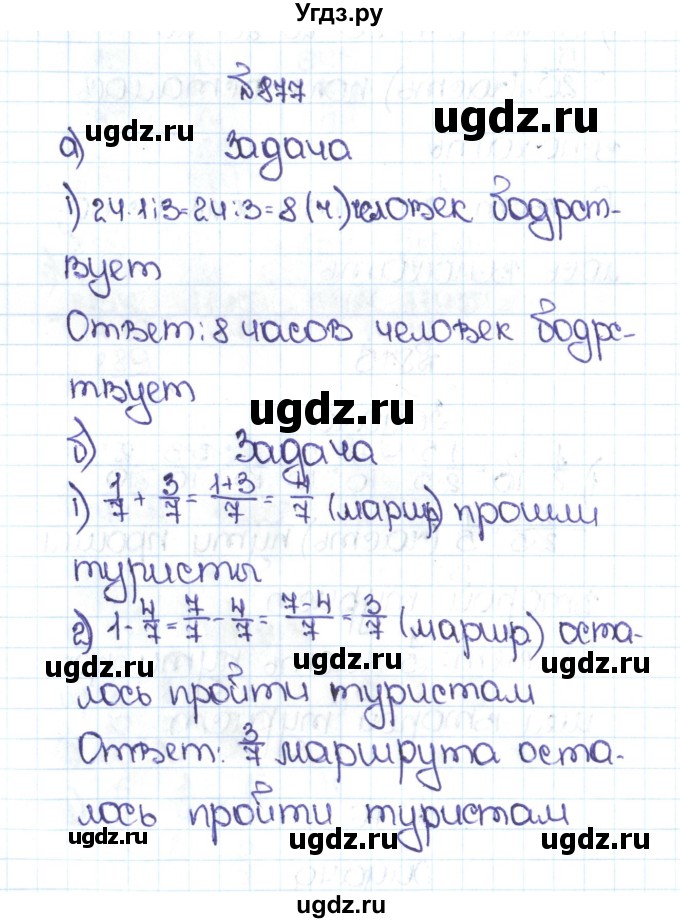 Угдз.ру
№877
ugdz.ru ugdz.ru
а) Задача
1) 24·1:3=24:3=8 (ч.) человек бодрст-
вует
Ответ: 8 часов человек бодрс-
твует
ugdz.ru
б) Задача
1) 1/7 + 3/7 = 1+3/7 = 4/7 (маршр) прошли
туристы
2) 1 - 4/7 = 7/7 - 4/7 = 7-4/7 = 3/7 (маршр.) оста-
ugdz.ru ugdz.ru ugdz.ru
лось пройти туристам
Ответ: 3/7 маршрута оста-
лось пройти туристам
ugdz.ru ugdz.ru ugdz.ru
ugdz.ru